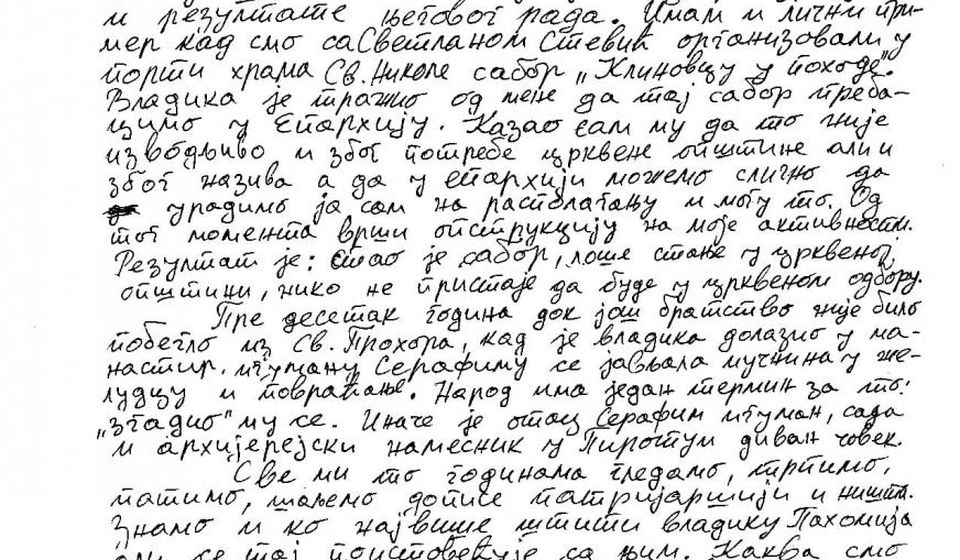 и резултате његовог рада. Имам и лични при-
мер кад смо са Светланом Стевић организовали у
порти храма Св. Николе сабор „Клиновцу у походе".
Владика је тражио од мене да тај сабор преба-
цимо у Епархију. Казао сам му да то није
изводљиво и због потребе црквене општине али и
због назива а да у епархији можемо слично да
урадимо ја сам на располагању и могу то. Од
тог момента врши опструкцију на моје активности.
Резултат је: стао је сабор, лоше стање у црквеној
општини, нико не пристаје да буде у црквеном одбору.
Пре десетак година док још братство није било
побегло из Св. Прохора, кад је владика долазио у ма-
настир, игуману Серафиму се јављала мучнина у же-
лудцу и повраћање. Народ има један термин за то:
„згадио" му се. Иначе је отац Серафим игуман, сада
и архијерејски намесник у Пироту диван човек.
Све ми то годинама гледамо, трпимо,
патимо, шаљемо дописе патријаршији и ништа.
Знамо и ко највише штити владику Пахомија
али се тај поистовећује са њим. Каква смо